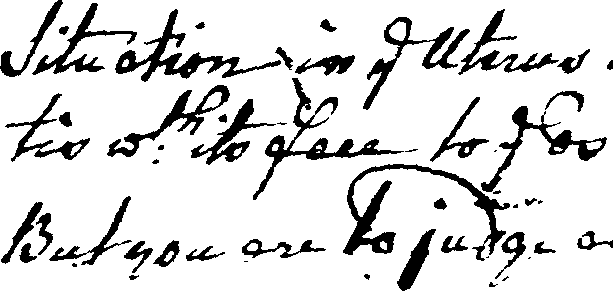 Situation in ye Uterus.
tis wth: its face to ye Os
But you are to judge